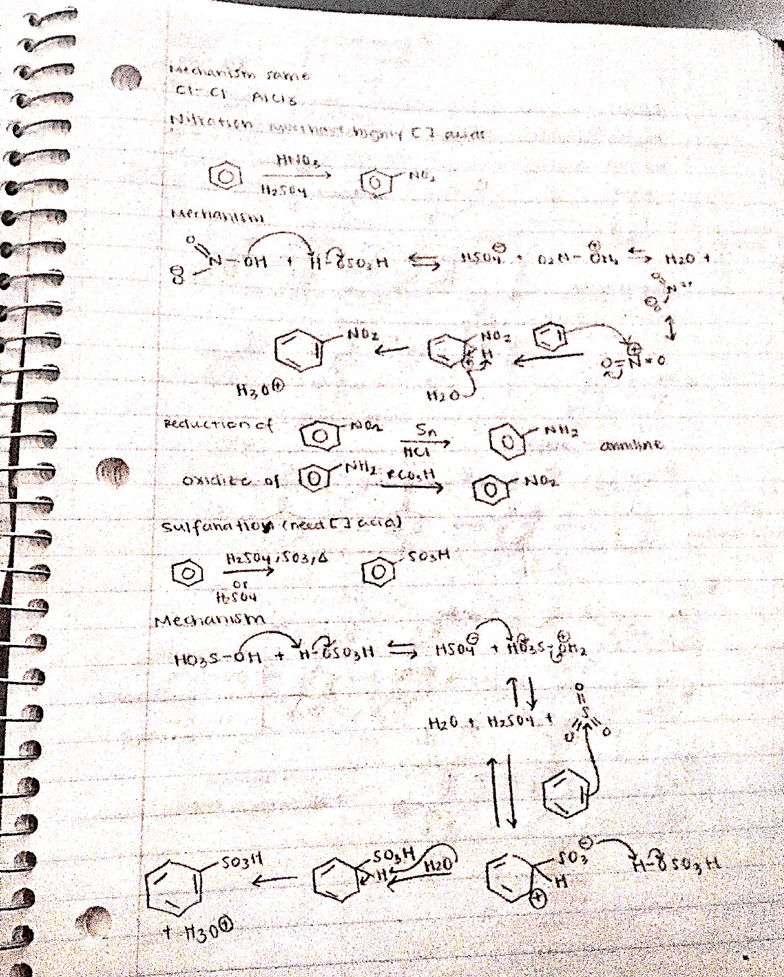 Mechanism same
Cl-Cl AlCl3
Nitration highly [ ] acids
HNO3
H2SO4
NO2
Mechanism
O N-OH + H-OSO3H ⇌ HSO4⊖ + O2N-OH2⊕ ⇌ H2O +
NO2 ← NO2 H ← O=N⊕=O
H3O⊕ H2O
Reduction of NO2 Sn HCl NH2
oxidize of NH2 RCO3H NO2
Sulfonation (need [ ] acid)
H2SO4, SO3, Δ SO3H
or
H2SO4
Mechanism
HO3S-OH + H-OSO3H ⇌ HSO4⊖ + HO3S-OH2⊕
H2O + H2SO4 + O S O O
SO3H ← SO3H H H2O ← SO3⊖ H ⊕ H-OSO3H
+ H3O⊕